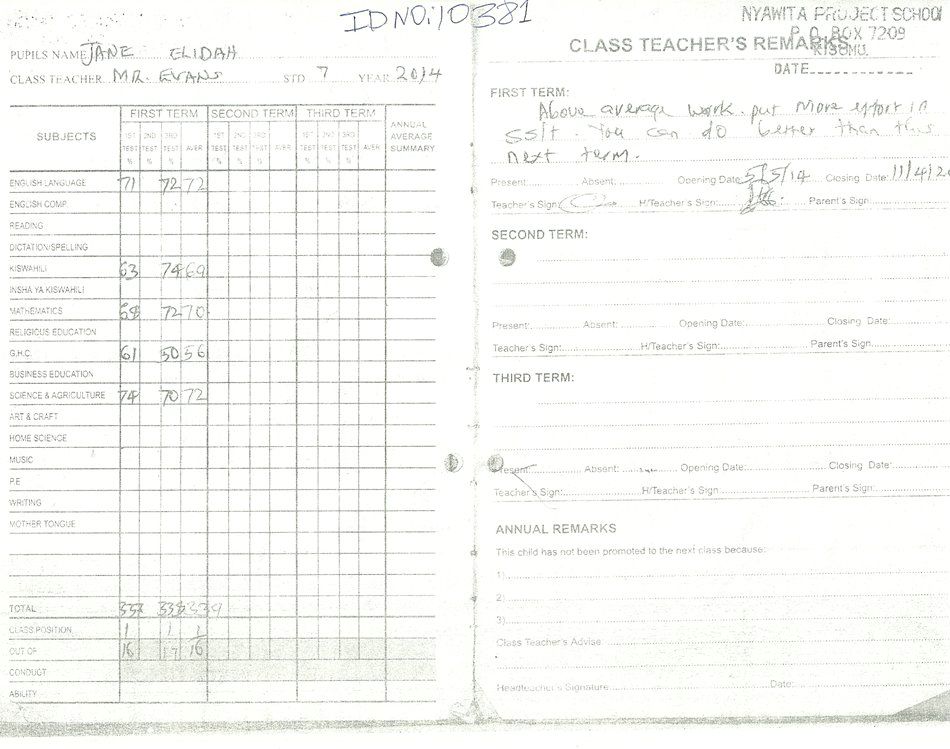 ID NO: 10381
NYAWITA PROJECT SCHOOL
P. O. BOX 7209
KISUMU.
PUPILS NAME JANE ELIDAH
CLASS TEACHER MR. EVANS STD 7 YEAR 2014
SUBJECTS FIRST TERM SECOND TERM THIRD TERM ANNUAL AVERAGE SUMMARY
1ST TEST % 2ND TEST % 3RD TEST % AVER 1ST TEST % 2ND TEST % 3RD TEST % AVER 1ST TEST % 2ND TEST % 3RD TEST % AVER
ENGLISH LANGUAGE 71 72 72
ENGLISH COMP.
READING
DICTATION/SPELLING
KISWAHILI 63 74 69
INSHA YA KISWAHILI
MATHEMATICS 72 70
RELIGIOUS EDUCATION
G.H.C. 61 50 56
BUSINESS EDUCATION
SCIENCE & AGRICULTURE 74 70 72
ART & CRAFT
HOME SCIENCE
MUSIC
P.E
WRITING
MOTHER TONGUE
TOTAL 337 338 339
CLASS POSITION 1 1 1
OUT OF 16 17 16
CONDUCT
ABILITY
CLASS TEACHER'S REMARKS
DATE
FIRST TERM:
Above average work. put more effort in
SS/t. You can do better than this
next term.
Present: Absent: Opening Date: 5/5/14 Closing Date: 11/4/20
Teacher's Sign: H/Teacher's Sign: Parent's Sign:
SECOND TERM:
Present: Absent: Opening Date: Closing Date:
Teacher's Sign: H/Teacher's Sign: Parent's Sign:
THIRD TERM:
Present: Absent: Opening Date: Closing Date:
Teacher's Sign: H/Teacher's Sign: Parent's Sign:
ANNUAL REMARKS
This child has not been promoted to the next class because:
1)
2)
3)
Class Teacher's Advise
Headteacher's Signature Date: